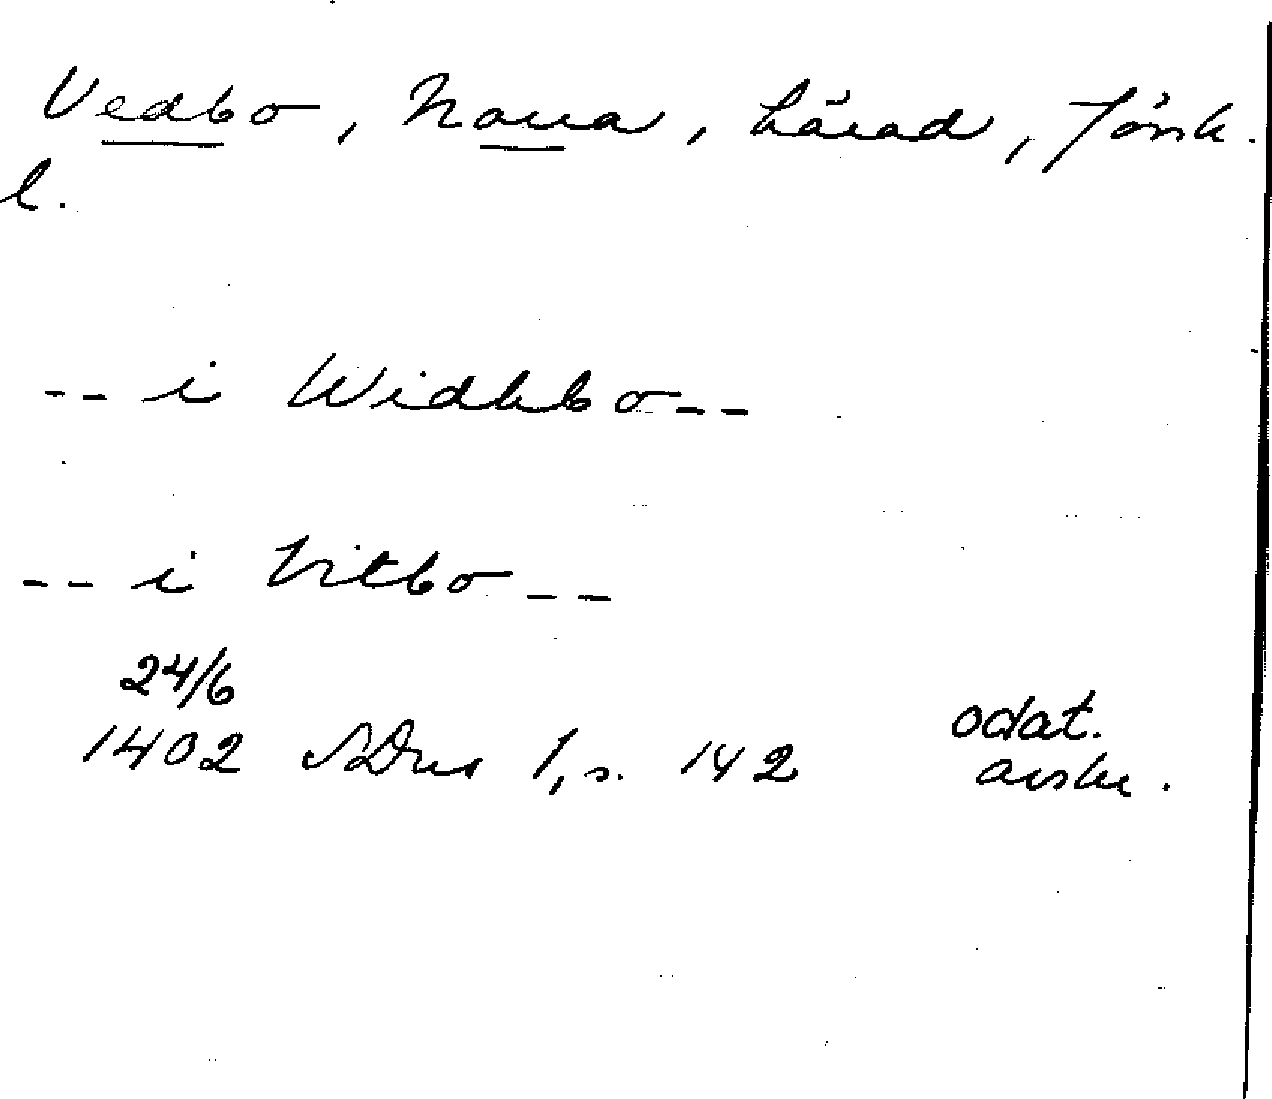 Vedbo, Norra, härad, Jönk.
l.
-- i Widhbo --
-- i Vitbo --
24/6
1402 SDns 1, s. 142
odat.
avskr.